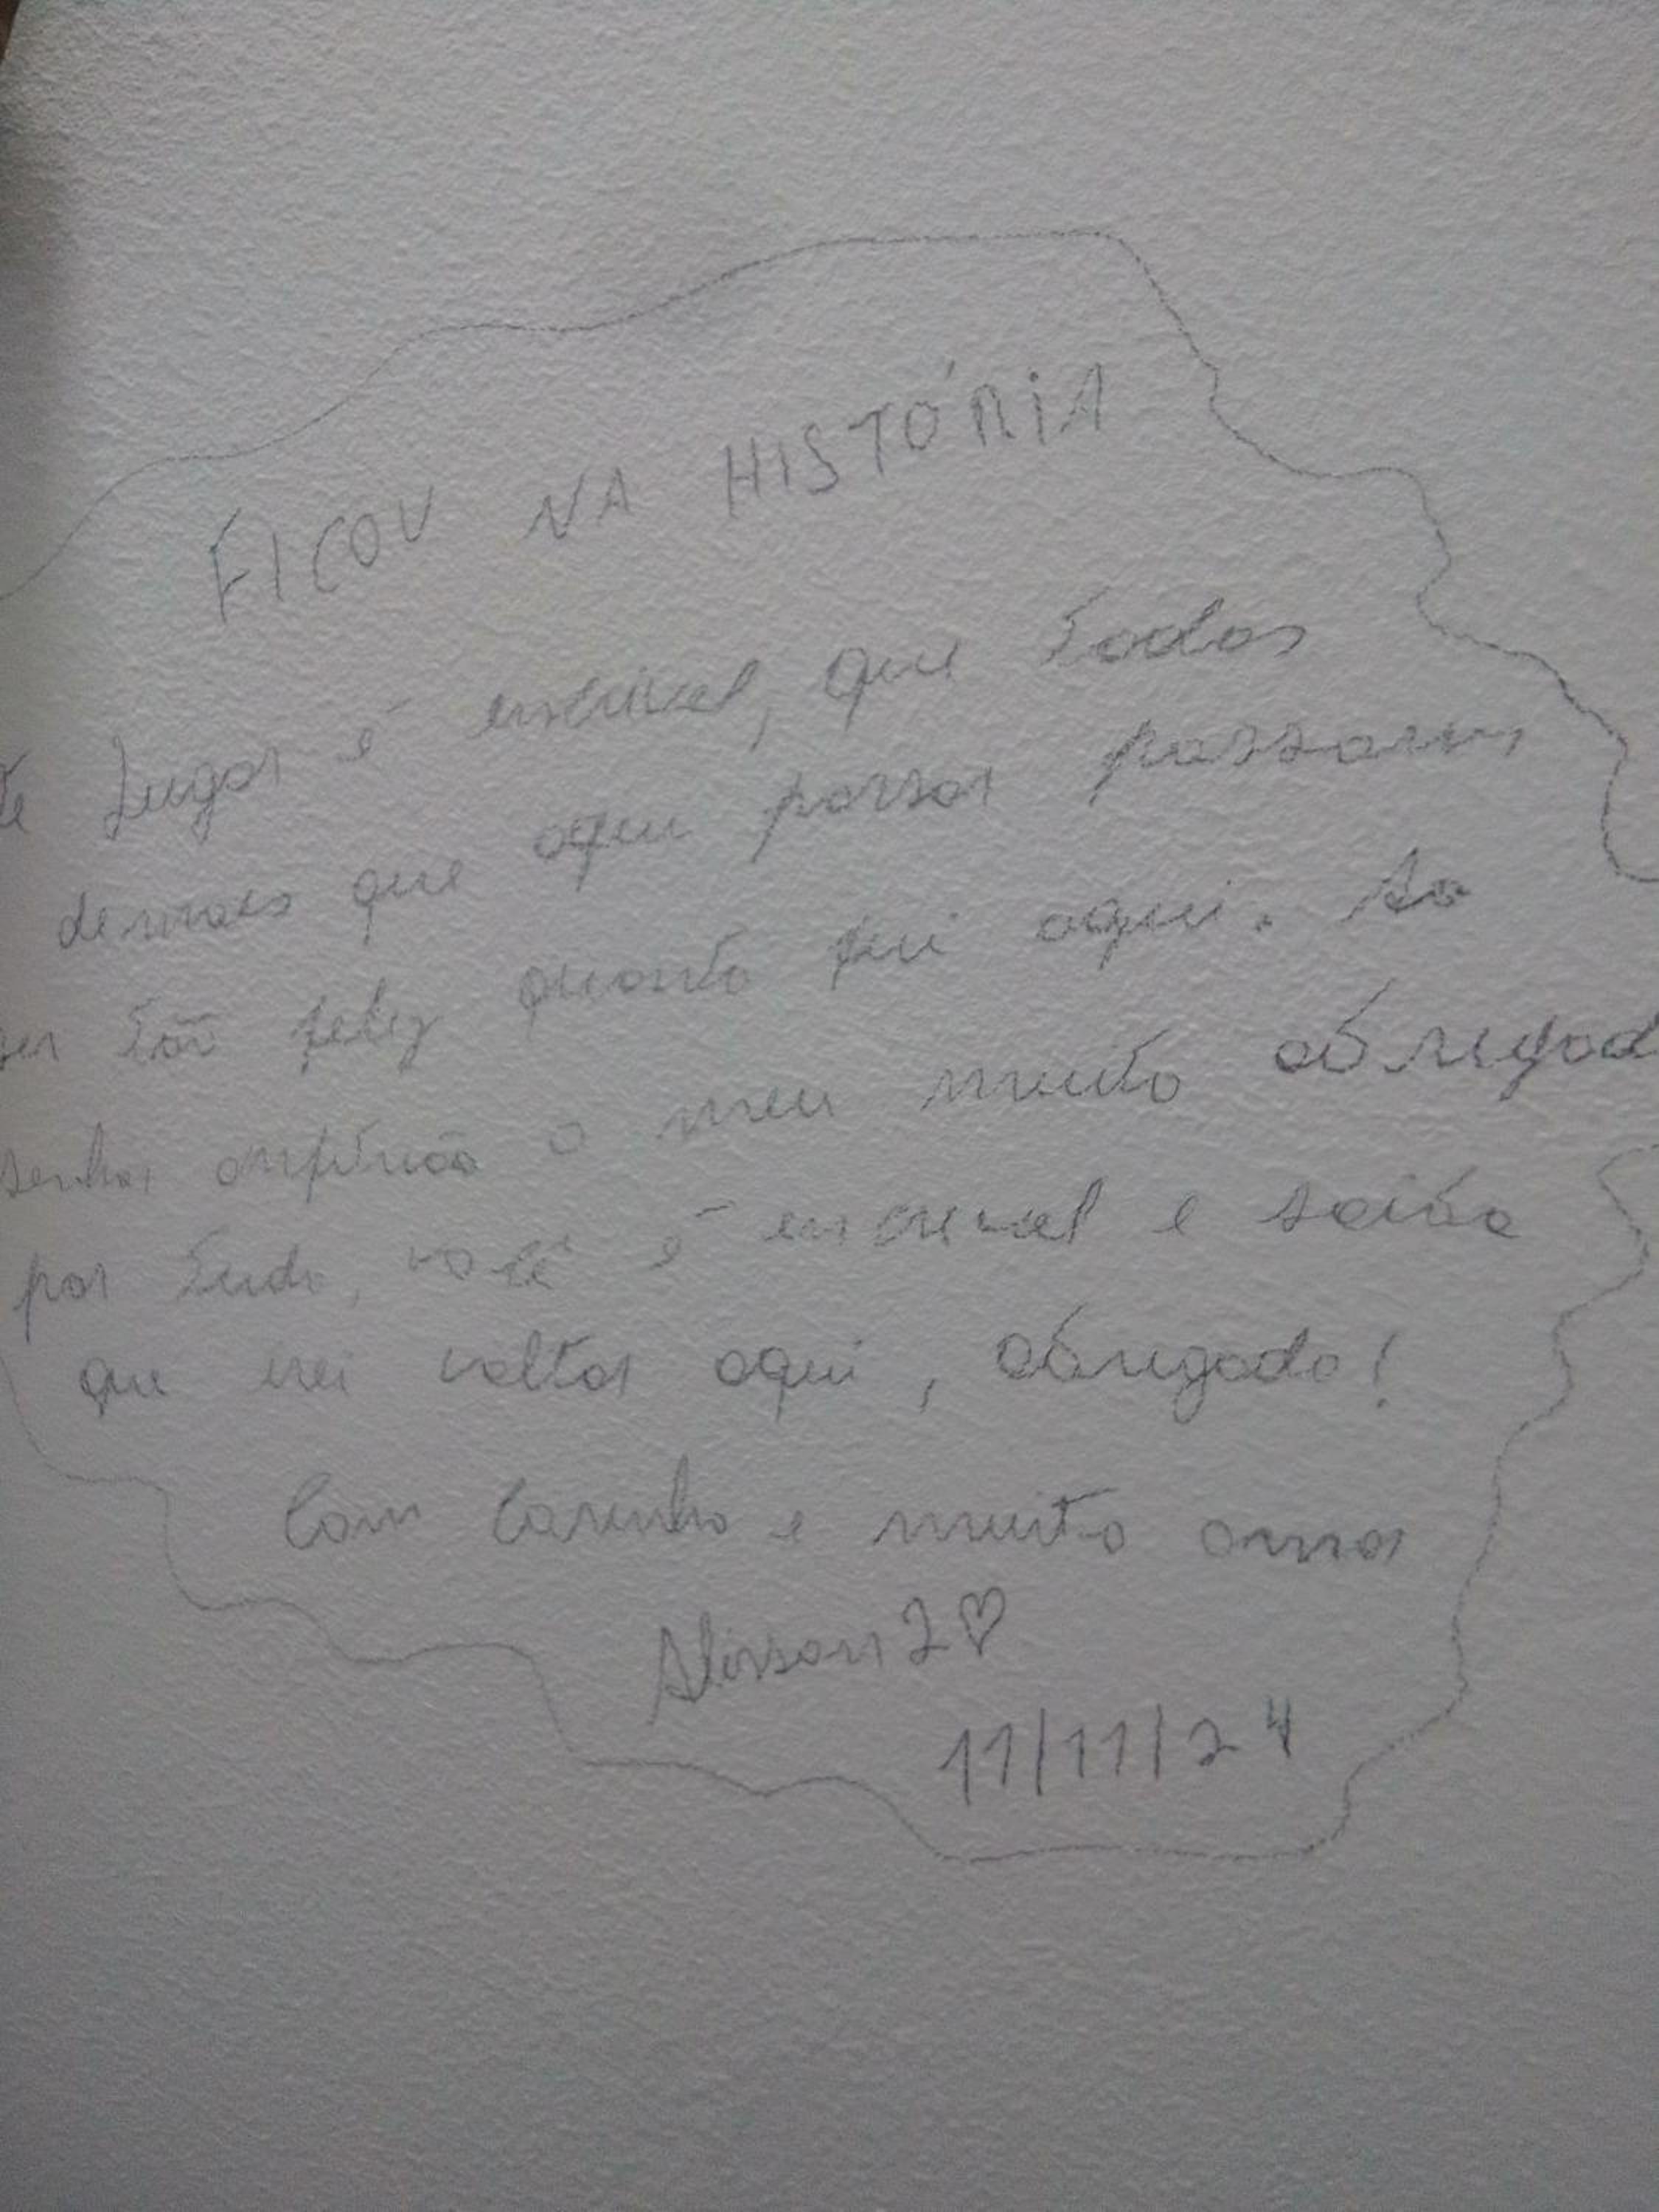 FICOU NA HISTÓRIA
te Lugar é incrivel, que todos
demais que aqui passar possam,
ser tão feliz quanto fui aqui. Ao
senhor anfitrião o meu muito obrigad
por tudo, você é incrivel e saiba
que irei voltar aqui, obrigado!
Com Carinho e muito amor
Alisson 2♡
11/11/24